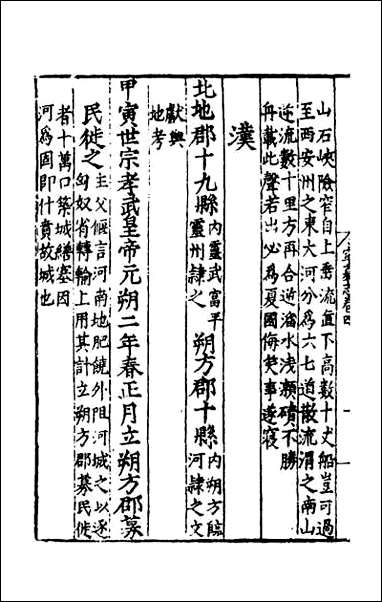 山石峽險窄自上垂流直下高數十丈船豈可過
至西安州之東大河分爲六七道散流渭之南山
逆流數十里方再合逆溜水浅灘磧不勝
舟載此聲若出必爲夏國侮笑事遂寢
漢
北地郡十九縣内靈武富平靈州隸之 朔方郡十縣内朔方臨河隸之文
獻輿
地考
甲寅世宗孝武皇帝元朔二年春正月立朔方郡募
民徙之主父偃言河南地肥饒外阻河城之以逐
匈奴省轉輸上用其計立朔方郡募民徙
者十萬口築城繕塞因
河爲固即什賁故城也